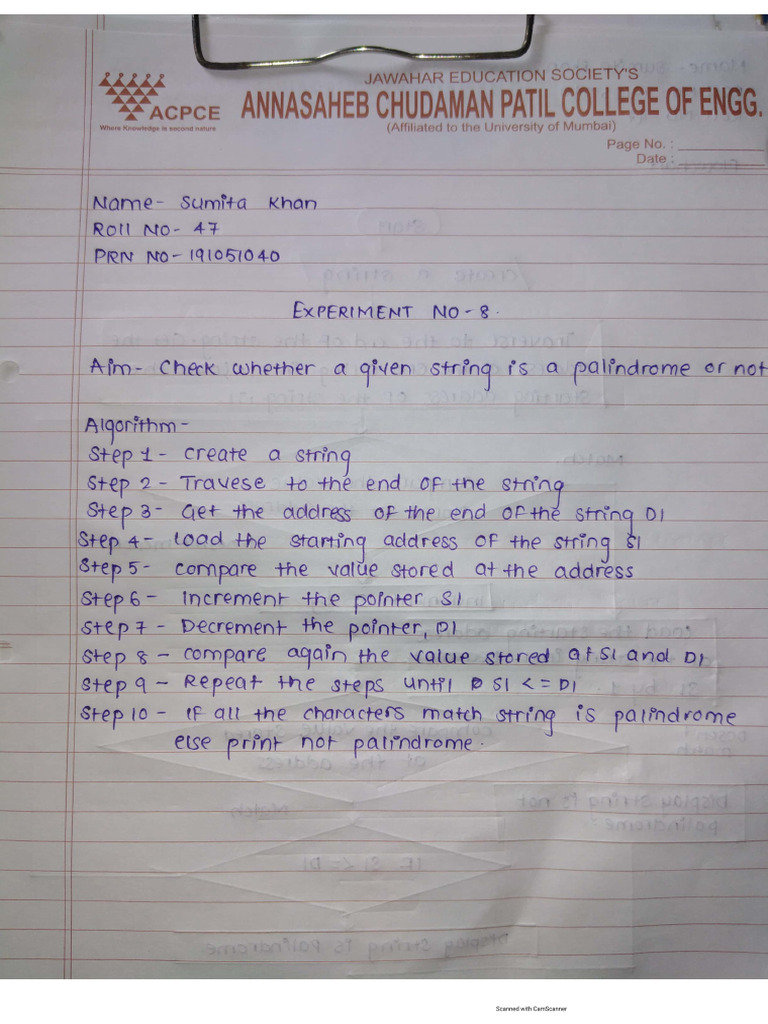 JAWAHAR EDUCATION SOCIETY'S
ACPCE
ANNASAHEB CHUDAMAN PATIL COLLEGE OF ENGG.
Where Knowledge is second nature
(Affiliated to the University of Mumbai)
Page No. :
Date :
Name- Sumita Khan
Roll No- 47
PRN No- 191051040
EXPERIMENT NO-8.
Aim- Check whether a given string is a palindrome or not
Algorithm-
Step 1- Create a string
Step 2- Travese to the end of the string
Step 3- Get the address of the end of the string DI
Step 4- Load the starting address of the string SI
Step 5- compare the value stored at the address
Step 6- Increment the pointer SI
Step 7- Decrement the pointer, DI
Step 8- compare again the value stored at SI and DI
Step 9- Repeat the steps until SI <= DI
Step 10- If all the characters match string is palindrome
else print not palindrome.
Scanned with CamScanner